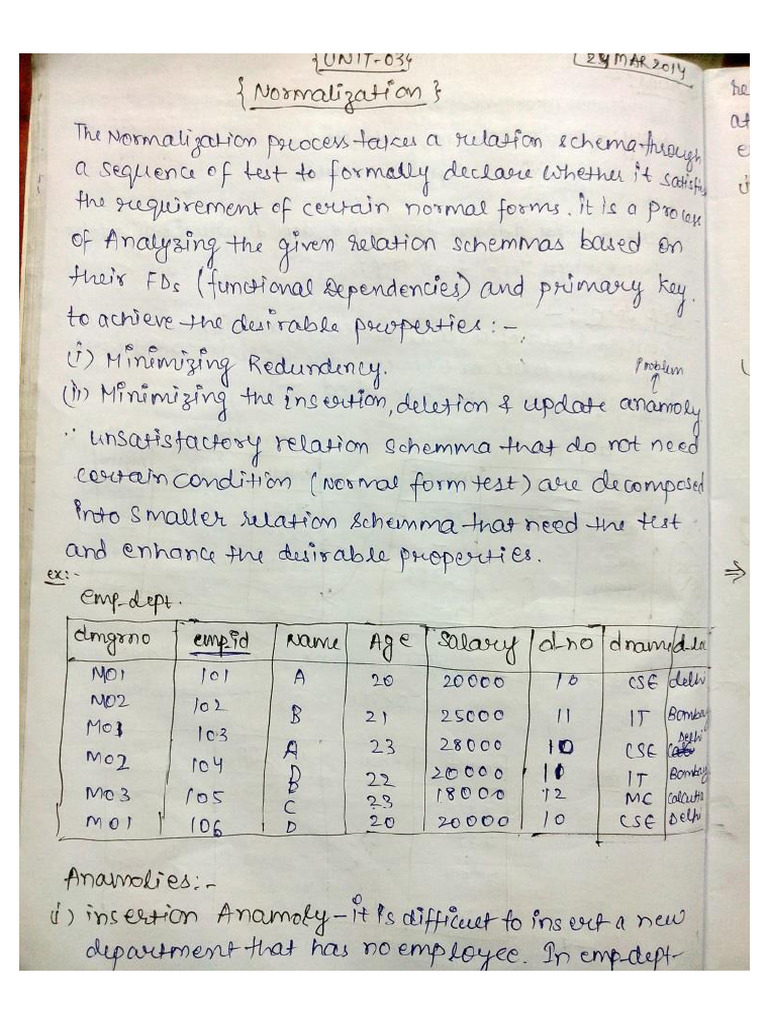 {UNIT-03}
24 MAR 2014
{Normalization}
The Normalization process takes a relation schema through
a sequence of test to formally declare whether it satisfies
the requirement of certain normal forms. it is a Process
of Analyzing the given relation schemmas based on
their FDs (functional Dependencies) and primary key.
to achieve the desirable properties :-
(i) Minimizing Redundency.
Problem
(ii) Minimizing the insertion, deletion & update anamoly
∵ unsatisfactory relation schemma that do not need
certain condition (Normal form test) are decomposed
into smaller relation schemma that need the test
and enhance the desirable properties.
ex:-
emp-dept.
dmgrno emp_id Name Age Salary d_no dname d_lo
M01 101 A 20 20000 10 CSE delhi
M02 102 B 21 25000 11 IT Bombay
M03 103 A 23 28000 10 CSE Delhi
M02 104 B 22 20000 10 IT Bombay
M03 105 C 23 18000 12 MC calcutta
M01 106 D 20 20000 10 CSE Delhi
Anamolies:-
i) insertion Anamoly - it is difficult to insert a new
department that has no employee. In emp-dept-
re
at
e
⇒